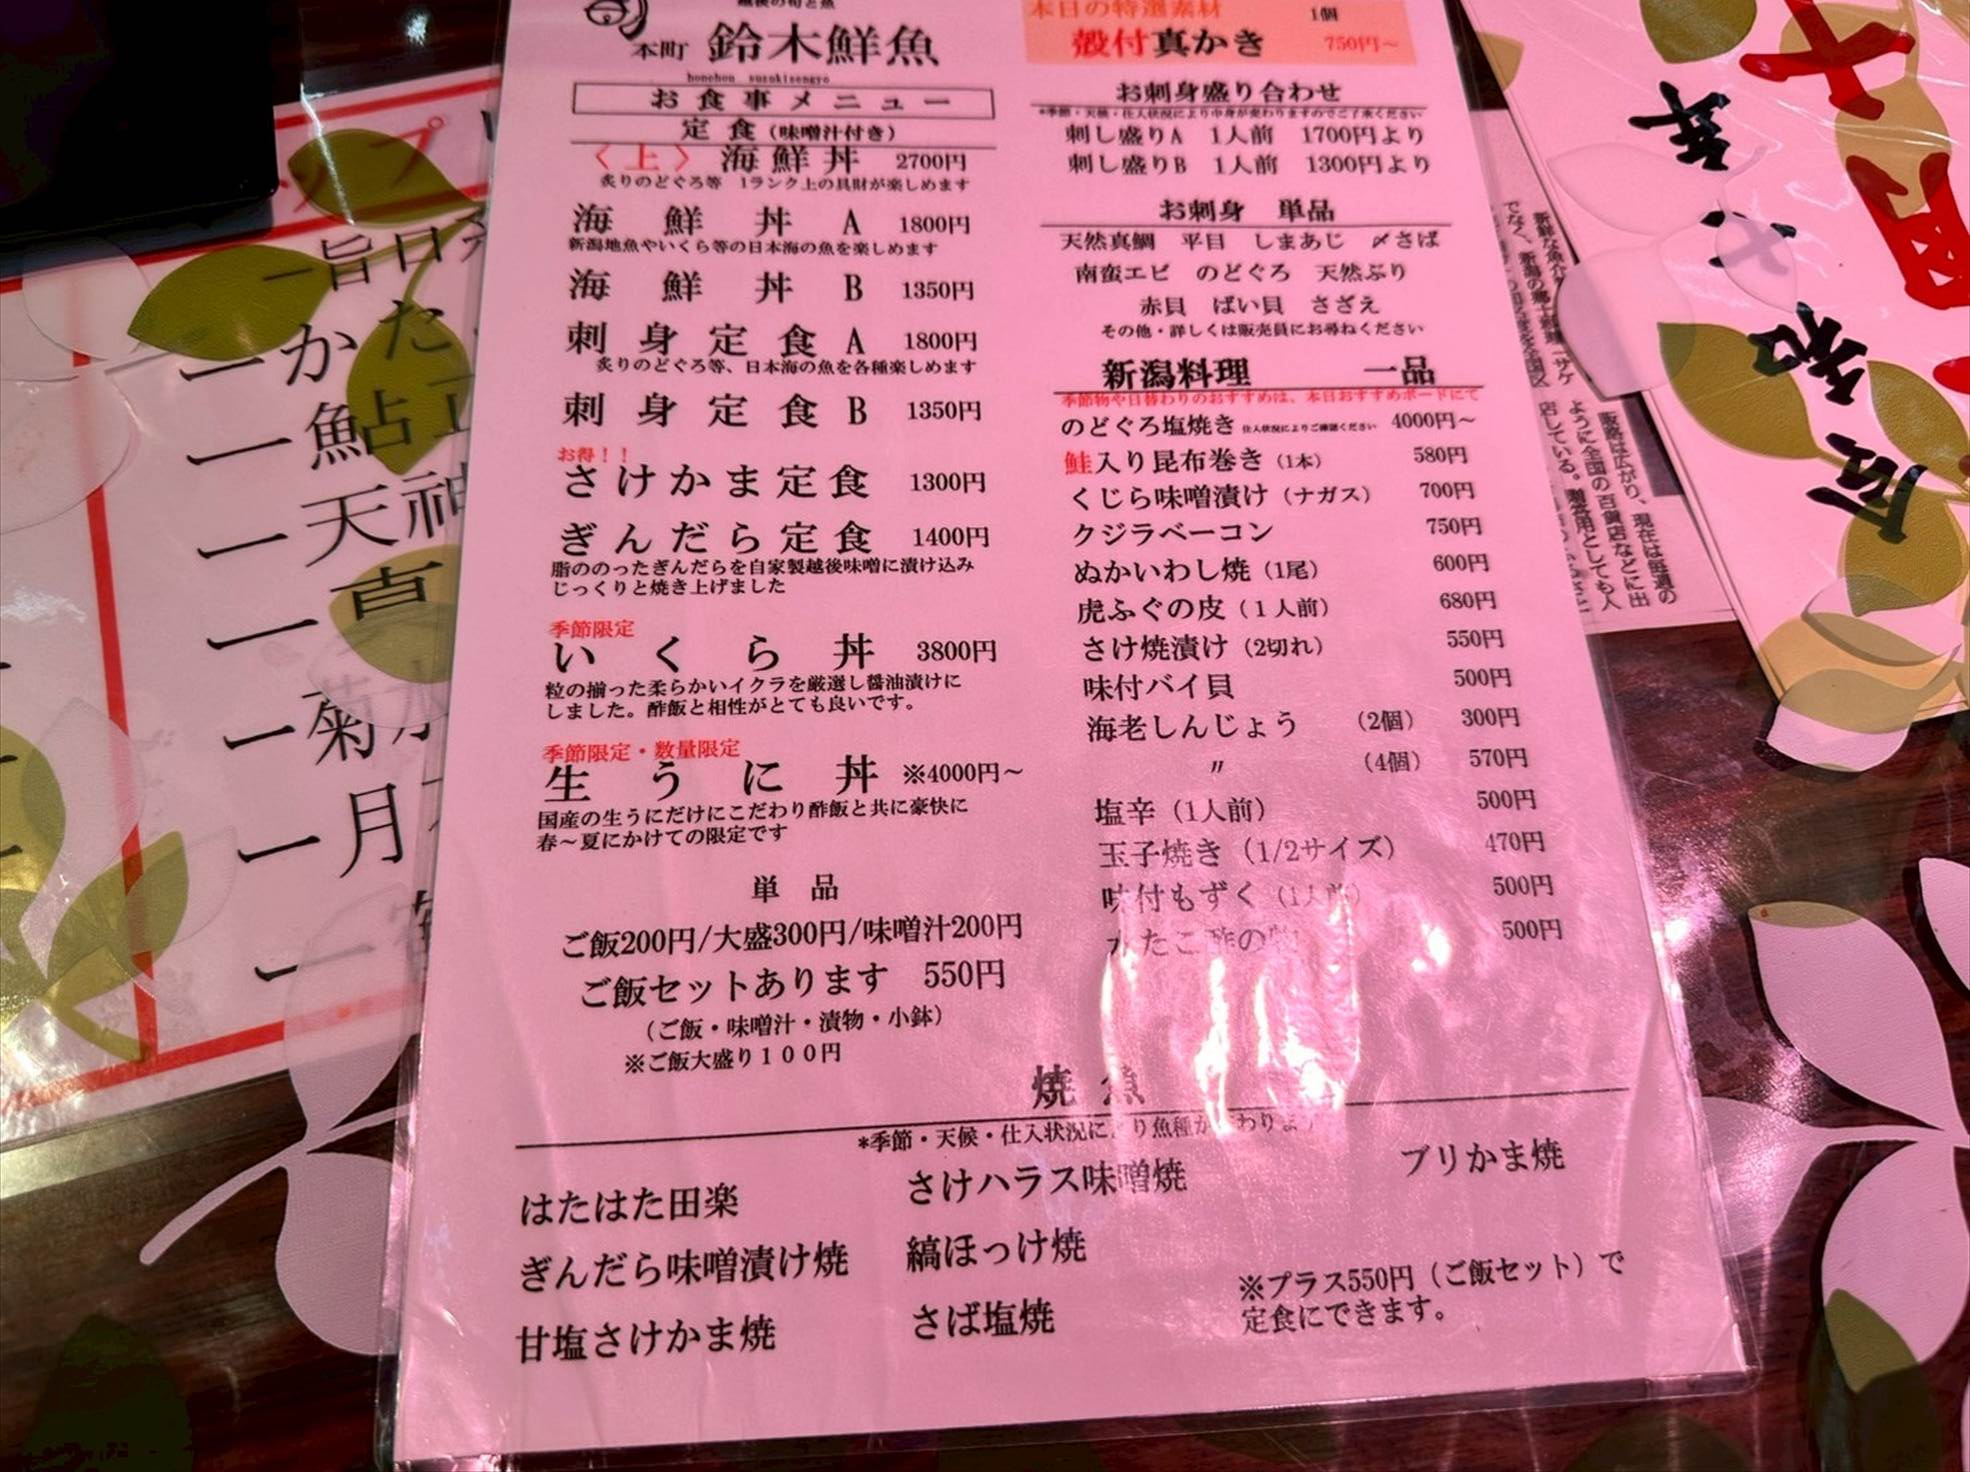 越後の旬と魚
本町 鈴木鮮魚
honchou suzukisengyo
お食事メニュー
定食(味噌汁付き)
〈上〉 海鮮丼 2700円
炙りのどぐろ等 1ランク上の具財が楽しめます
海鮮丼A 1800円
新潟地魚やいくら等の日本海の魚を楽しめます
海鮮丼B 1350円
刺身定食A 1800円
炙りのどぐろ等、日本海の魚を各種楽しめます
刺身定食B 1350円
お得！！
さけかま定食 1300円
ぎんだら定食 1400円
脂ののったぎんだらを自家製越後味噌に漬け込み
じっくりと焼き上げました
季節限定
いくら丼 3800円
粒の揃った柔らかいイクラを厳選し醤油漬けに
しました。酢飯と相性がとても良いです。
季節限定・数量限定
生うに丼 ※4000円～
国産の生うにだけにこだわり酢飯と共に豪快に
春～夏にかけての限定です
単品
ご飯200円/大盛300円/味噌汁200円
ご飯セットあります 550円
（ご飯・味噌汁・漬物・小鉢）
※ご飯大盛り１００円
本日の特選素材 1個
殻付真かき 750円～
お刺身盛り合わせ
*季節・天候・仕入状況により中身が変わりますのでご了承ください
刺し盛りA 1人前 1700円より
刺し盛りB 1人前 1300円より
お刺身 単品
天然真鯛 平目 しまあじ 〆さば
南蛮エビ のどぐろ 天然ぶり
赤貝 ばい貝 さざえ
その他・詳しくは販売員にお尋ねください
新潟料理 一品
季節物や日替わりのおすすめは、本日おすすめボードにて
のどぐろ塩焼き 仕入状況によりご確認ください 4000円～
鮭入り昆布巻き（1本） 580円
くじら味噌漬け（ナガス） 700円
クジラベーコン 750円
ぬかいわし焼（1尾） 600円
虎ふぐの皮（１人前） 680円
さけ焼漬け（2切れ） 550円
味付バイ貝 500円
海老しんじょう （2個） 300円
〃 （4個） 570円
塩辛（1人前） 500円
玉子焼き（1/2サイズ） 470円
味付もずく（1人前） 500円
たこ酢の物 500円
焼魚
*季節・天候・仕入状況により魚種が変わります
はたはた田楽
ぎんだら味噌漬け焼
甘塩さけかま焼
さけハラス味噌焼
縞ほっけ焼
さば塩焼
ブリかま焼
※プラス550円（ご飯セット）で
定食にできます。
ップ
一旨口
一かた
一鮎正
一天神
一真
一菊水
一月
一
新鮮な魚介
でなく、新潟の郷土料理「サケ
販路は広がり、現在は毎週の
ように全国の百貨店などに出
店している。贈答用としても人